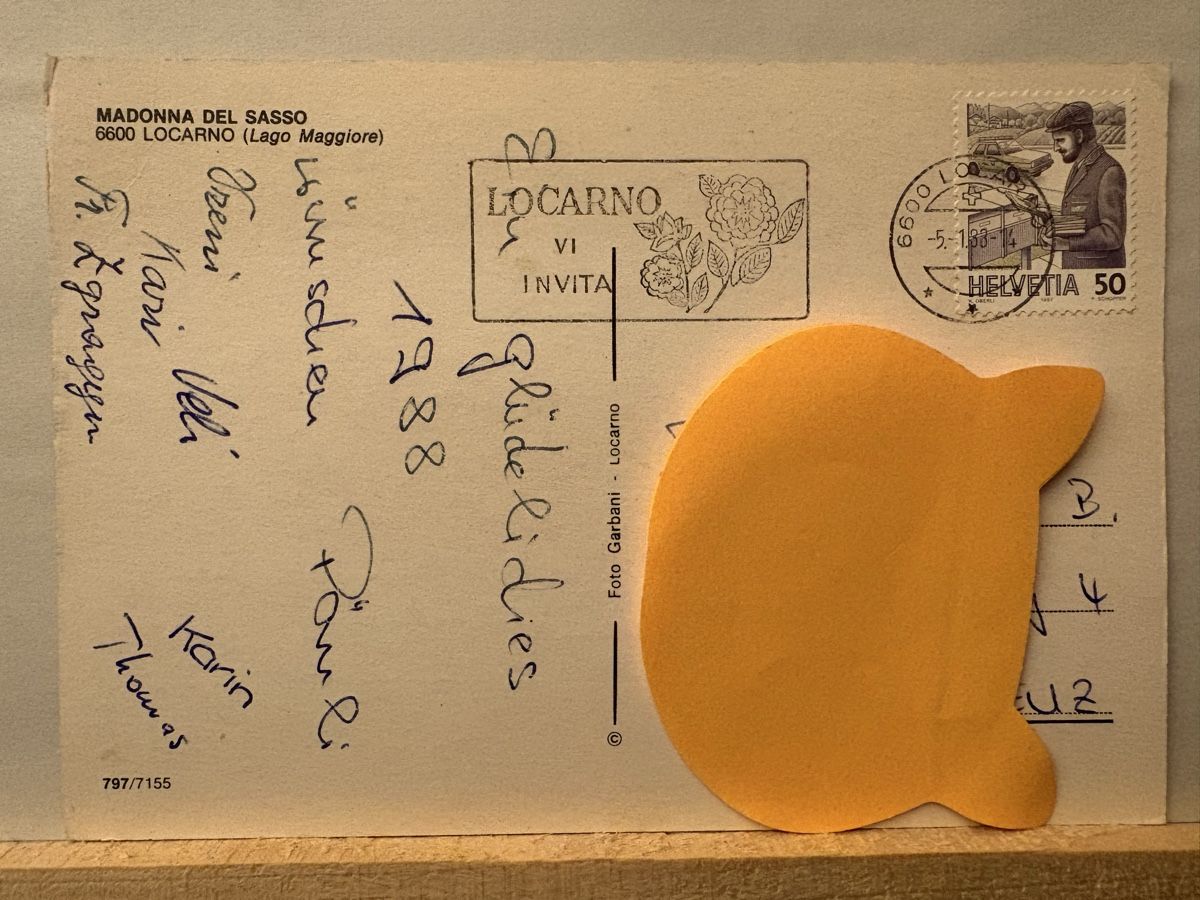 MADONNA DEL SASSO
6600 LOCARNO (Lago Maggiore)
LOCARNO
VI
INVITA
6600 LO
-5.-1.88-14
HELVETIA 50
K. OBERLI 1987 P. SCHOPFER
Ein
glückliches
1988
wünschen
Päuli
Vreni
Kari Ueli
Fr. Zgraggen
Karin
Thomas
© Foto Garbani - Locarno
B.
4
EUZ
797/7155